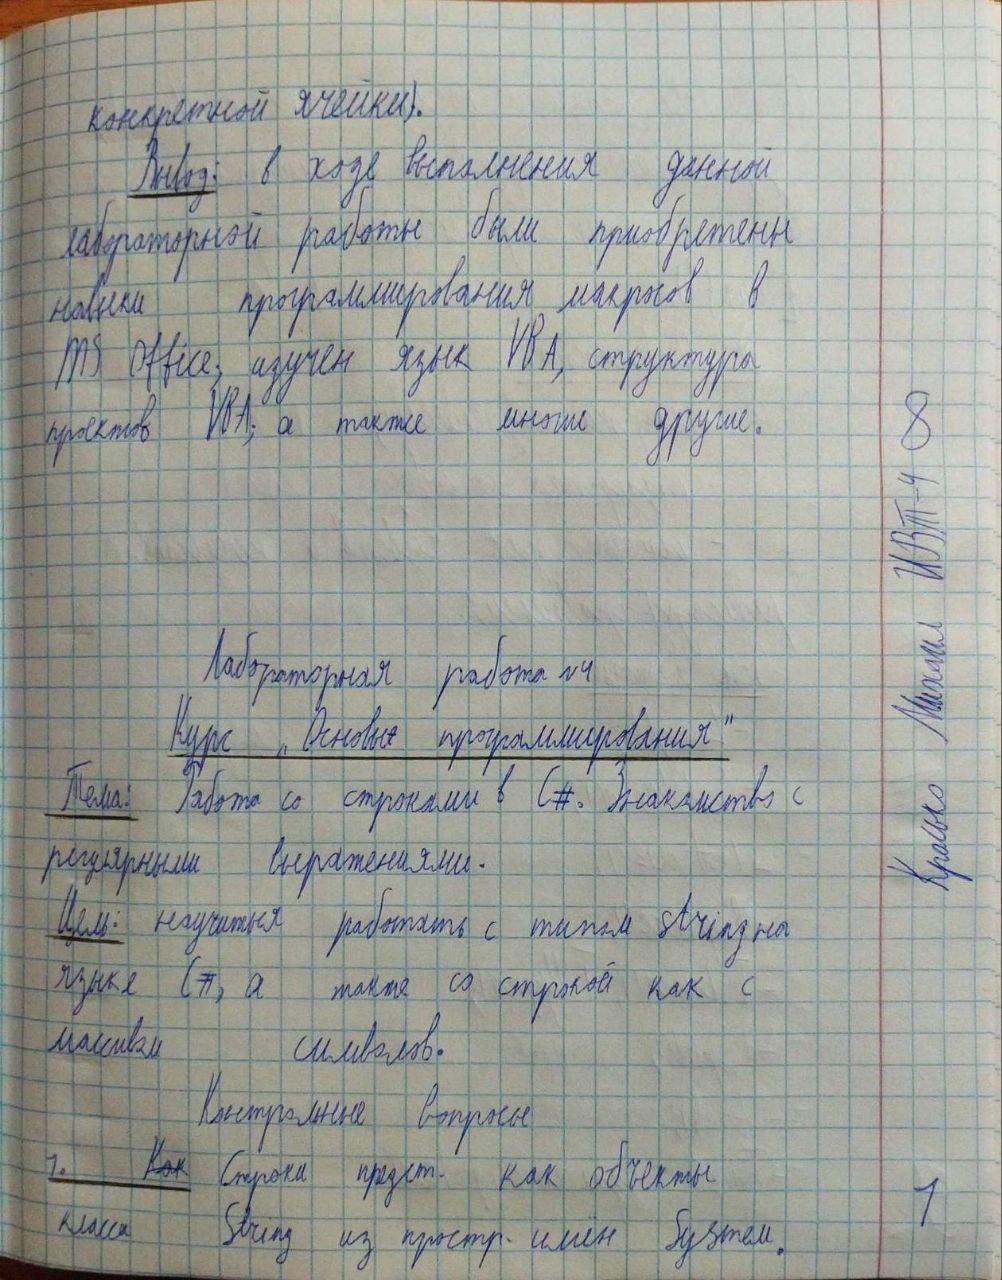 конкретной ячейки).
Вывод: в ходе выполнения данной
лабораторной работы были приобретены
навыки программирования макросов в
MS Office, изучен язык VBA, структура
проектов VBA, а также многие другие.
Лабораторная работа №4
Курс „Основы программирования"
Тема: Работа со строками в C#. Знакомство с
регулярными выражениями.
Цель: научиться работать с типом string на
языке C#, а также со строкой как с
массивом символов.
Контрольные вопросы
1. Как Строки предст. как объекты
класса String из простр. имён System.
Михаил ИВТ-4 8
1